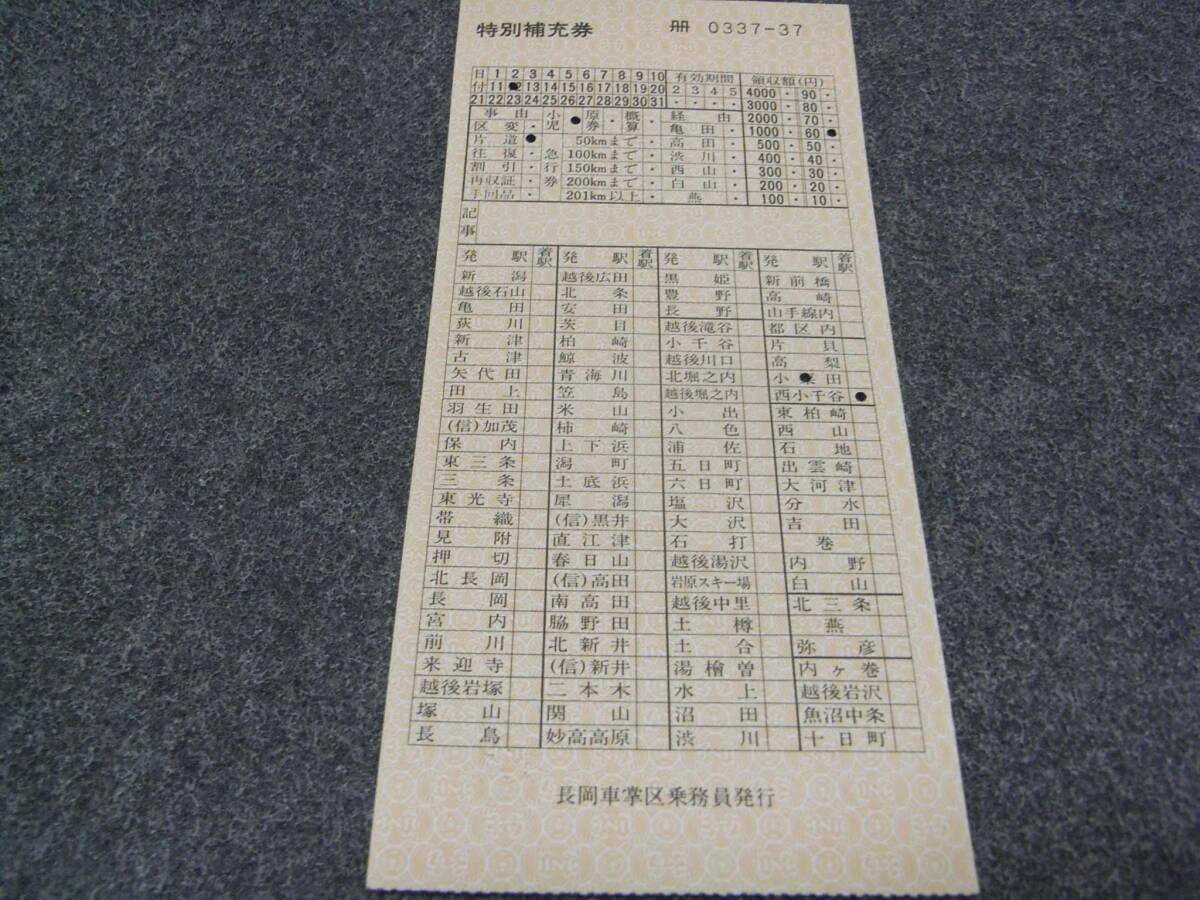 特別補充券 冊 0337-37
日 1 2 3 4 5 6 7 8 9 10 有効期間 領収額(円)
付 11 13 14 15 16 17 18 19 20 2 3 4 5 4000 ・ 90 ・
21 22 23 24 25 26 27 28 29 30 31 ・ ・ ・ ・ 3000 ・ 80 ・
事由 小児 原券 ・ 概算 ・ 経由 2000 ・ 70 ・
区変 ・ 亀田 ・ 1000 ・ 60
片道 50kmまで ・ 高田 ・ 500 ・ 50 ・
往復 ・ 急 100kmまで ・ 渋川 ・ 400 ・ 40 ・
割引 ・ 行 150kmまで ・ 西山 ・ 300 ・ 30 ・
再収証 ・ 券 200kmまで ・ 白山 ・ 200 ・ 20 ・
手回品 ・ 201km以上 ・ 燕 ・ 100 ・ 10 ・
記事
発駅 着駅 発駅 着駅 発駅 着駅 発駅 着駅
新潟 越後広田 黒姫 新前橋
越後石山 北条 豊野 高崎
亀田 安田 長野 山手線内
荻川 茨目 越後滝谷 都区内
新津 柏崎 小千谷 片貝
古津 鯨波 越後川口 高梨
矢代田 青海川 北堀之内 小粟田
田上 笠島 越後堀之内 西小千谷
羽生田 米山 小出 東柏崎
(信)加茂 柿崎 八色 西山
保内 上下浜 浦佐 石地
東三条 潟町 五日町 出雲崎
三条 土底浜 六日町 大河津
東光寺 犀潟 塩沢 分水
帯織 (信)黒井 大沢 吉田
見附 直江津 石打 巻
押切 春日山 越後湯沢 内野
北長岡 (信)高田 岩原スキー場 白山
長岡 南高田 越後中里 北三条
宮内 脇野田 土樽 燕
前川 北新井 土合 弥彦
来迎寺 (信)新井 湯檜曽 内ヶ巻
越後岩塚 二本木 水上 越後岩沢
塚山 関山 沼田 魚沼中条
長鳥 妙高高原 渋川 十日町
長岡車掌区乗務員発行